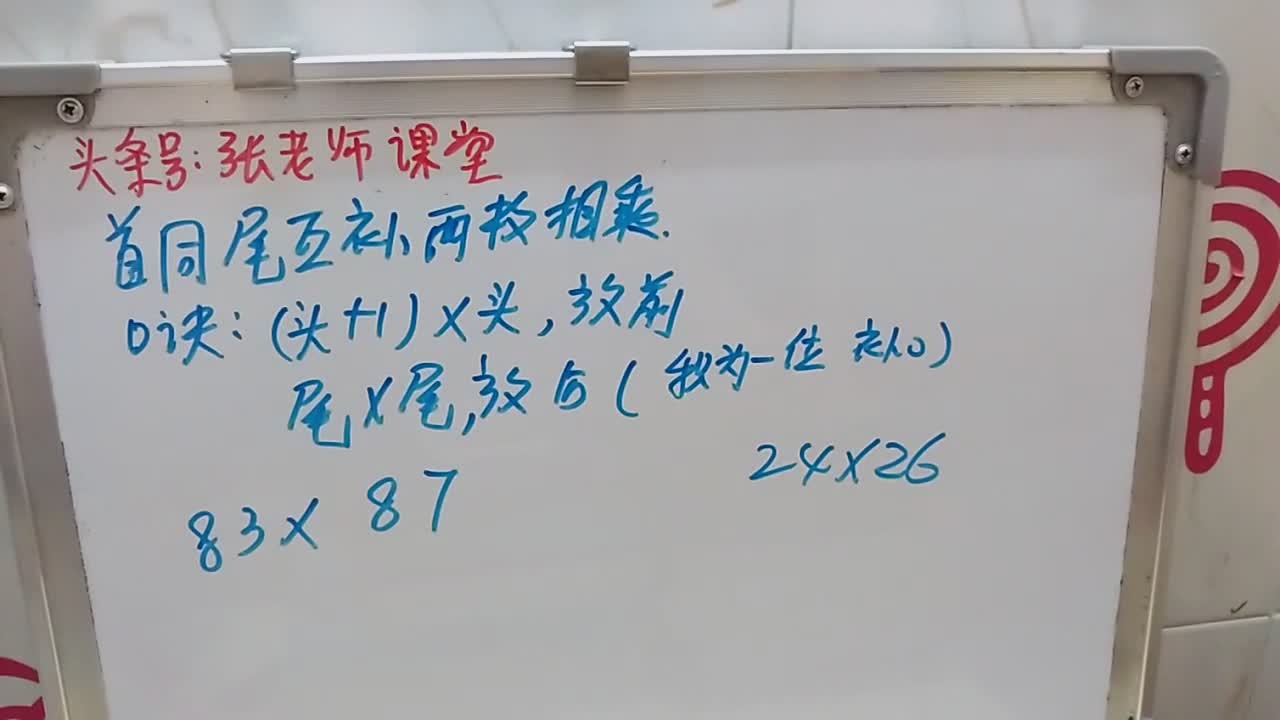 头条号:张老师课堂
首同尾互补,两数相乘.
口诀:(头+1)×头,放前
尾×尾,放后(积为一位 补0)
83×87
24×26